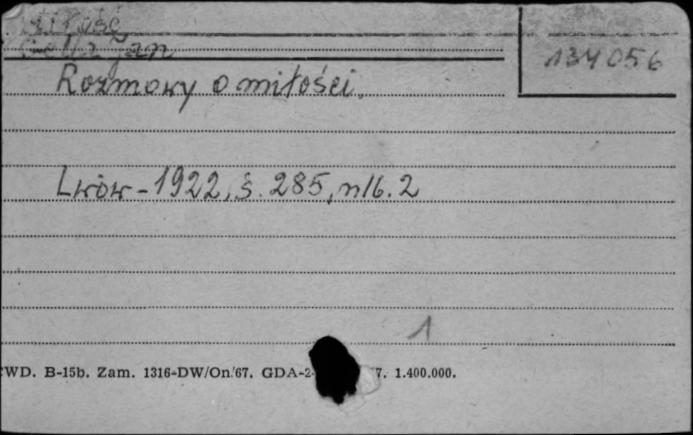 Miłość
134056
Gella Jan
Rozmowy o miłości.
Lwów - 1922, s. 285, nlb. 2
1
CWD. B-15b. Zam. 1316-DW/On/67. GDA-2 7. 1.400.000.